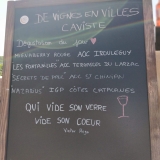 DE VIGNES EN VILLES
CAVISTE
Dégustation du jour
ROUGE AOC IROULEGUY
LES AOC TERRASSES DU LARZAC
SECRETS DE AOC ST CHINIAN
IGP CÔTES CATALANES
QUI VIDE SON VERRE
VIDE SON COEUR
Victor Hugo